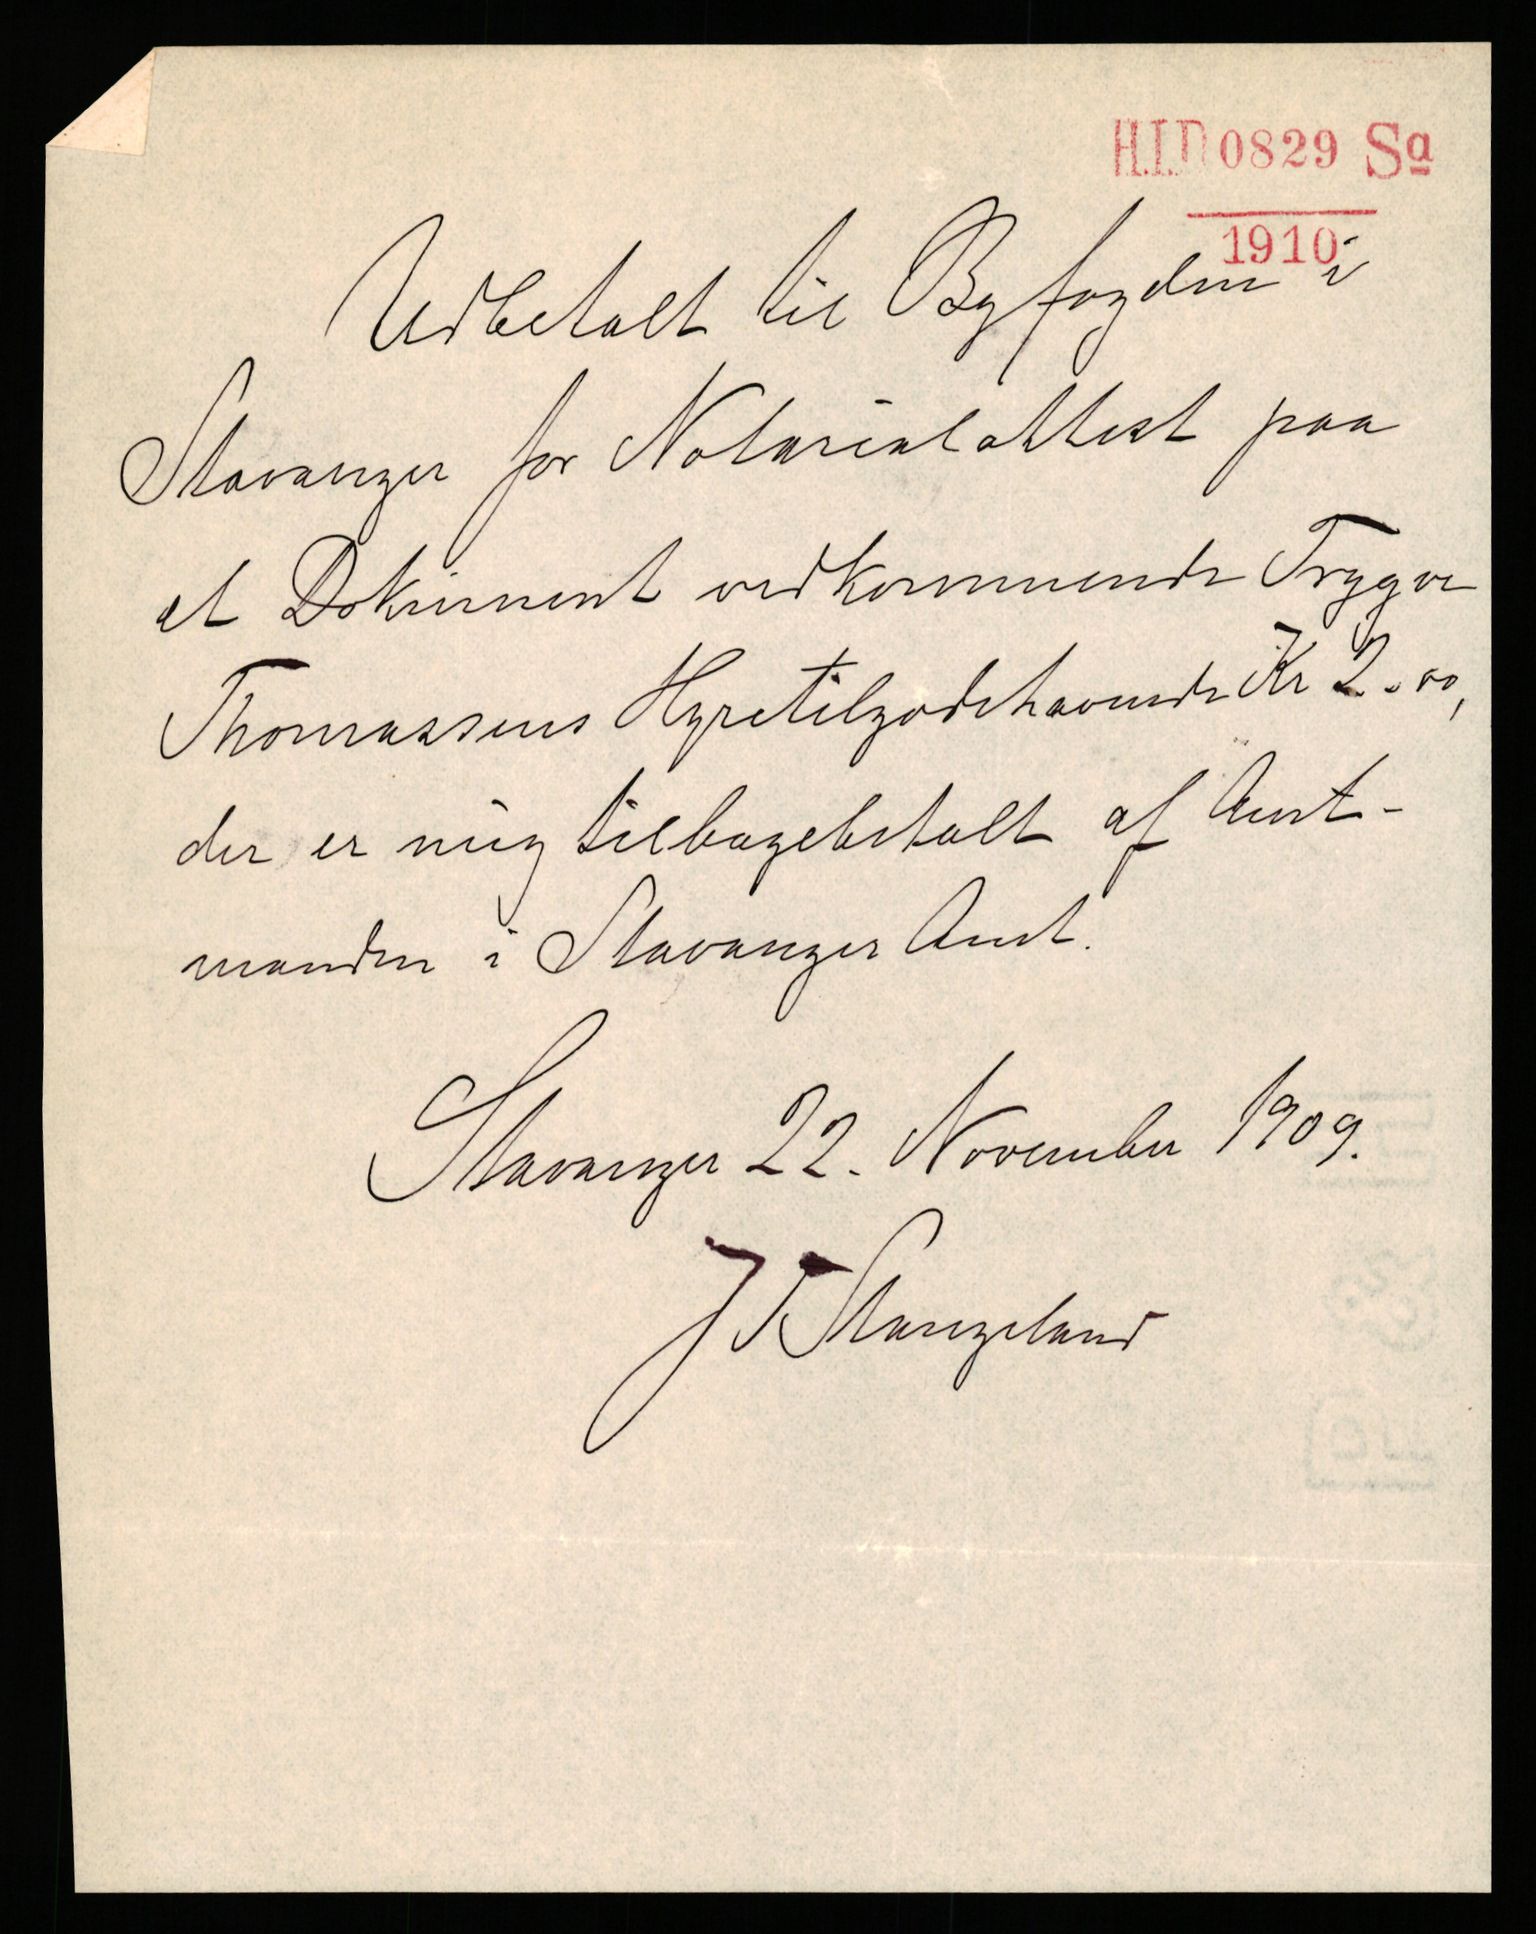 H.I.D 0829 Sa
1910
Udbetalt til Byfogden i
Stavanger for Notarialattest paa
et Dokument vedkommende Trygve
Thomassens Hyretilgodehavende Kr 2.00,
der er mig tilbagebetalt af Amt-
manden i Stavanger Amt.
Stavanger 22. November 1909.
J T Stangeland